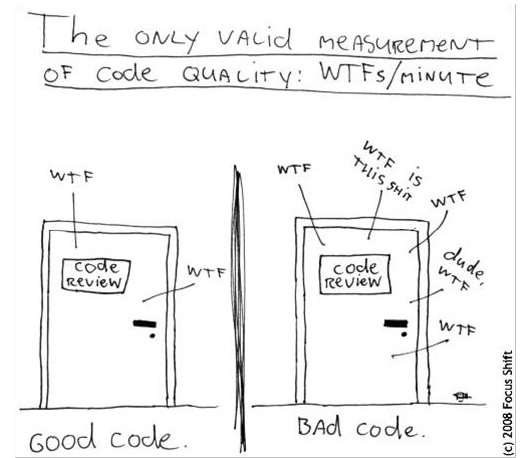 The ONLY VALID MEASUREMENT
OF Code QUALITY: WTFs/MINUTE
WTF
Code
REVIEW
WTF
GOOD Code.
WTF
WTF is
THIS SHIT
WTF
code
REVIEW
dude,
WTF
WTF
BAD code.
(c) 2008 Focus Shift